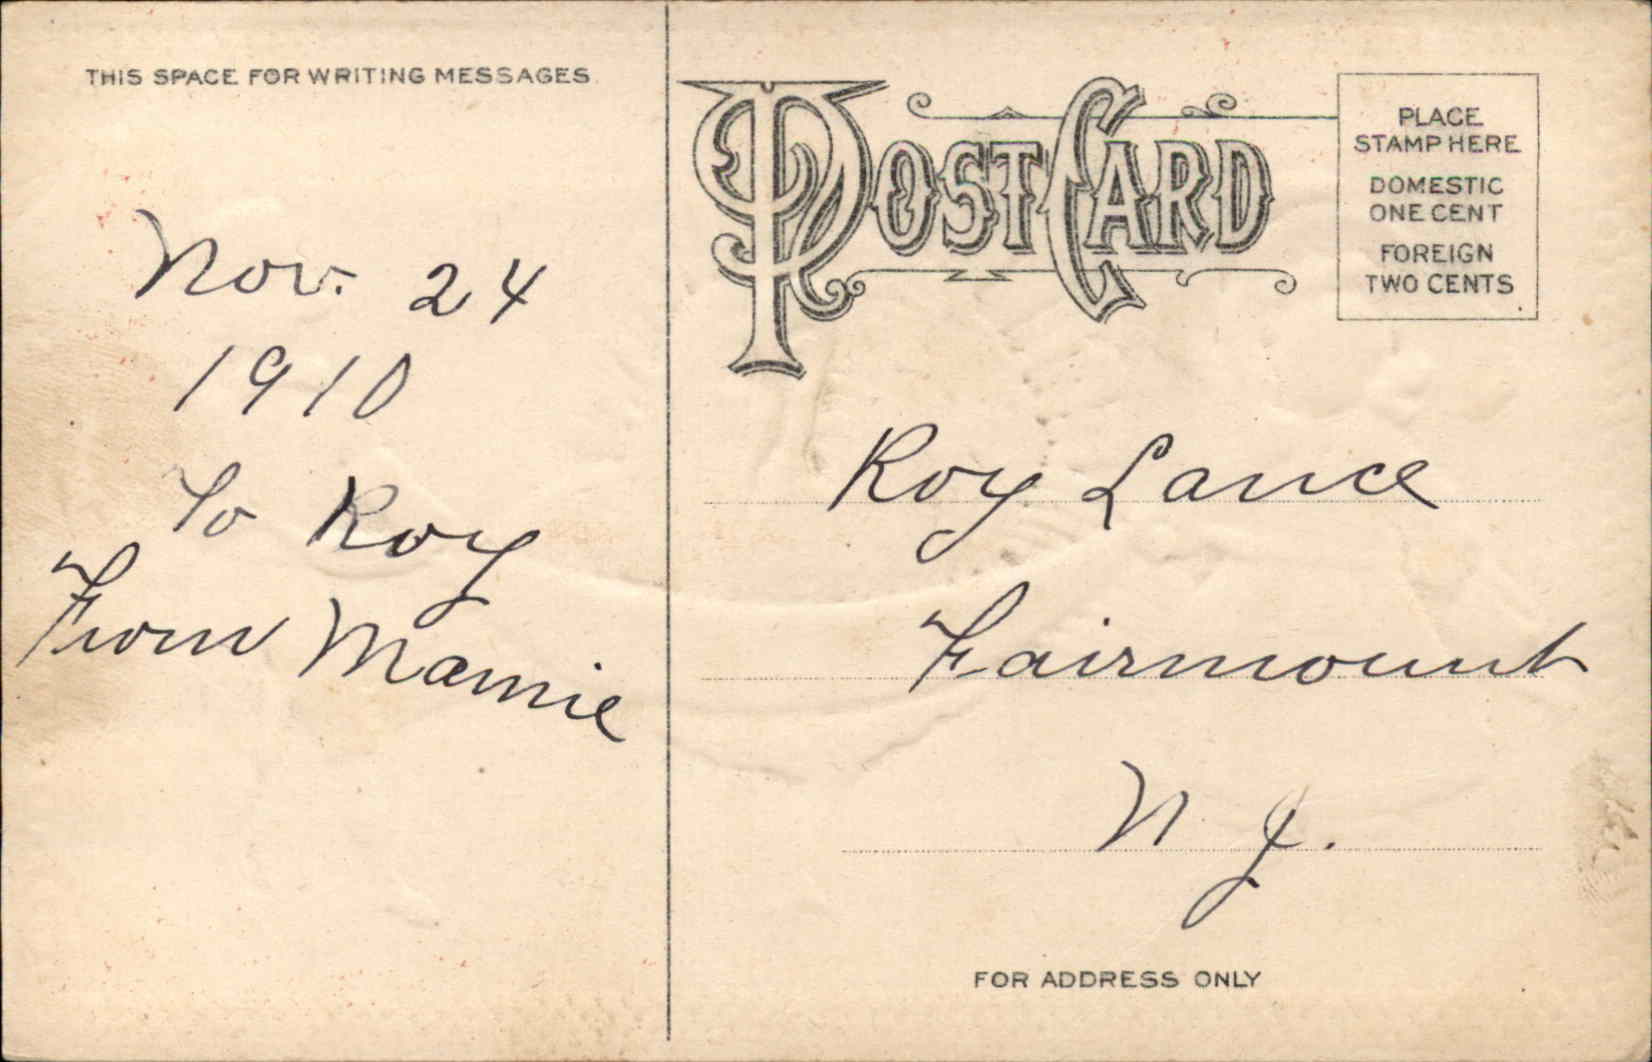 THIS SPACE FOR WRITING MESSAGES
Nov. 24
1910
To Roy
From Mamie
POST CARD
PLACE
STAMP HERE
DOMESTIC
ONE CENT
FOREIGN
TWO CENTS
Roy Lance
Fairmount
N J.
FOR ADDRESS ONLY